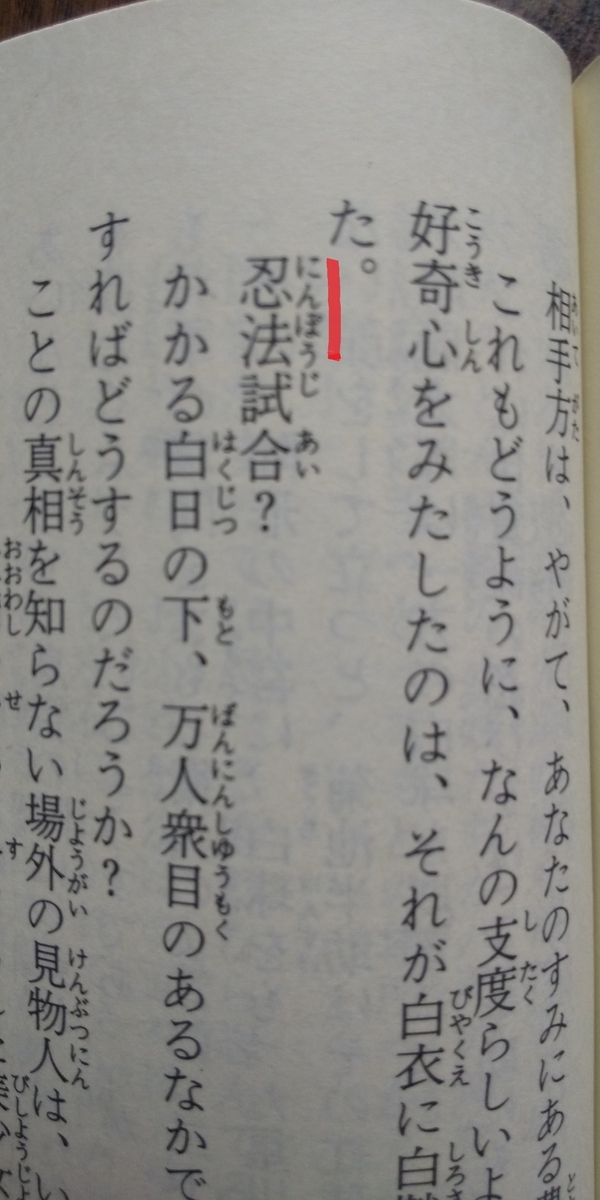 相手方は、やがて、あなたのすみにある
これもどうように、なんの支度らしいよ
好奇心をみたしたのは、それが白衣に白
た。
忍法試合？
かかる白日の下、万人衆目のあるなかで
すればどうするのだろうか？
ことの真相を知らない場外の見物人は、い